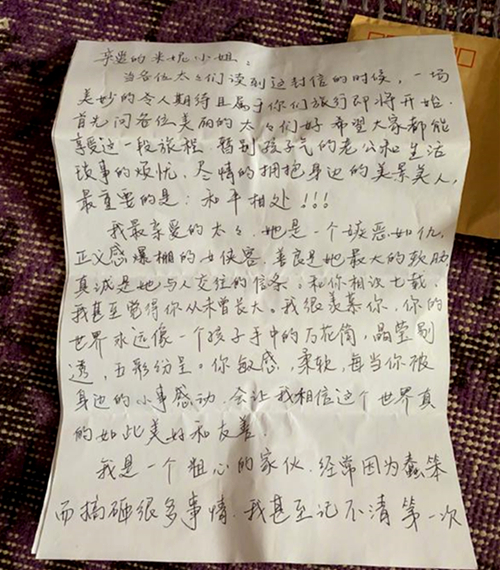 亲爱的米妮小姐:
当各位太太们读到这封信的时候,一场
美妙的令人期待且属于你们旅行即将开始.
首先问各位美丽的太太们好 希望大家都能
享受这一段旅程 暂别孩子气的老公和生活
琐事的烦忧,尽情的拥抱身边的美景美人,
最重要的是:和平相处!!!
我最亲爱的太太.她是一个嫉恶如仇,
正义感爆棚的女侠客.善良是她最大的软肋
真诚是她与人交往的信条;和你相识七载,
我甚至觉得你从未曾长大。我很羡慕你,你的
世界永远像一个孩子手中的万花筒,晶莹剔
透,五彩纷呈。你敏感,柔软,每当你被
身边的小事感动,会让我相信这个世界真
的如此美好和友善!
我是一个粗心的家伙.经常因为蠢笨
而搞砸很多事情.我甚至记不清第一次